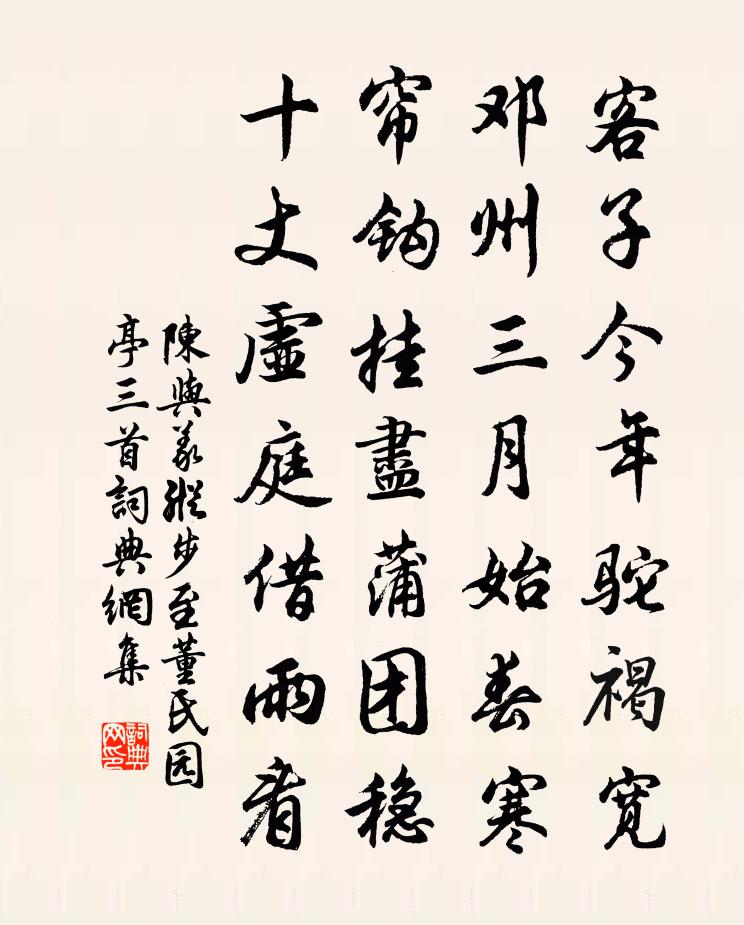 客子今年驼褐宽
邓州三月始春寒
帘鈎挂盡蒲团稳
十丈虛庭借雨看
陳與義縱步至董民园
亭三首詞典網集
詞典
网印